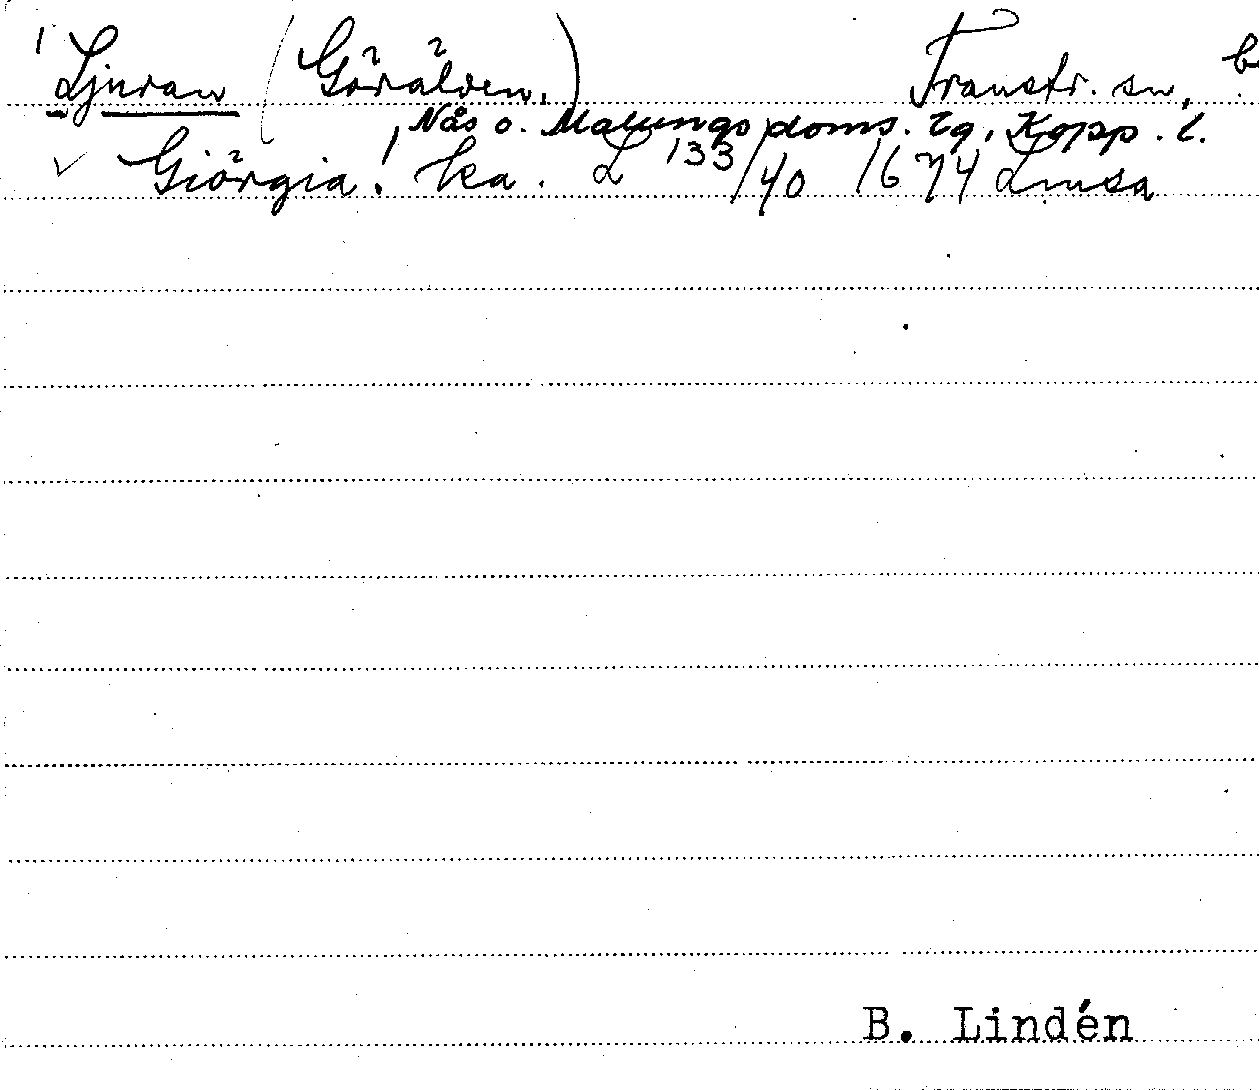 1 Ljuran (Görälven.) Transtr. sn,
Nås o. Malungs doms. tg, Kopp. l.
✓ Giörgia! ka. L 133/40 1674 Limsa
B. Lindén